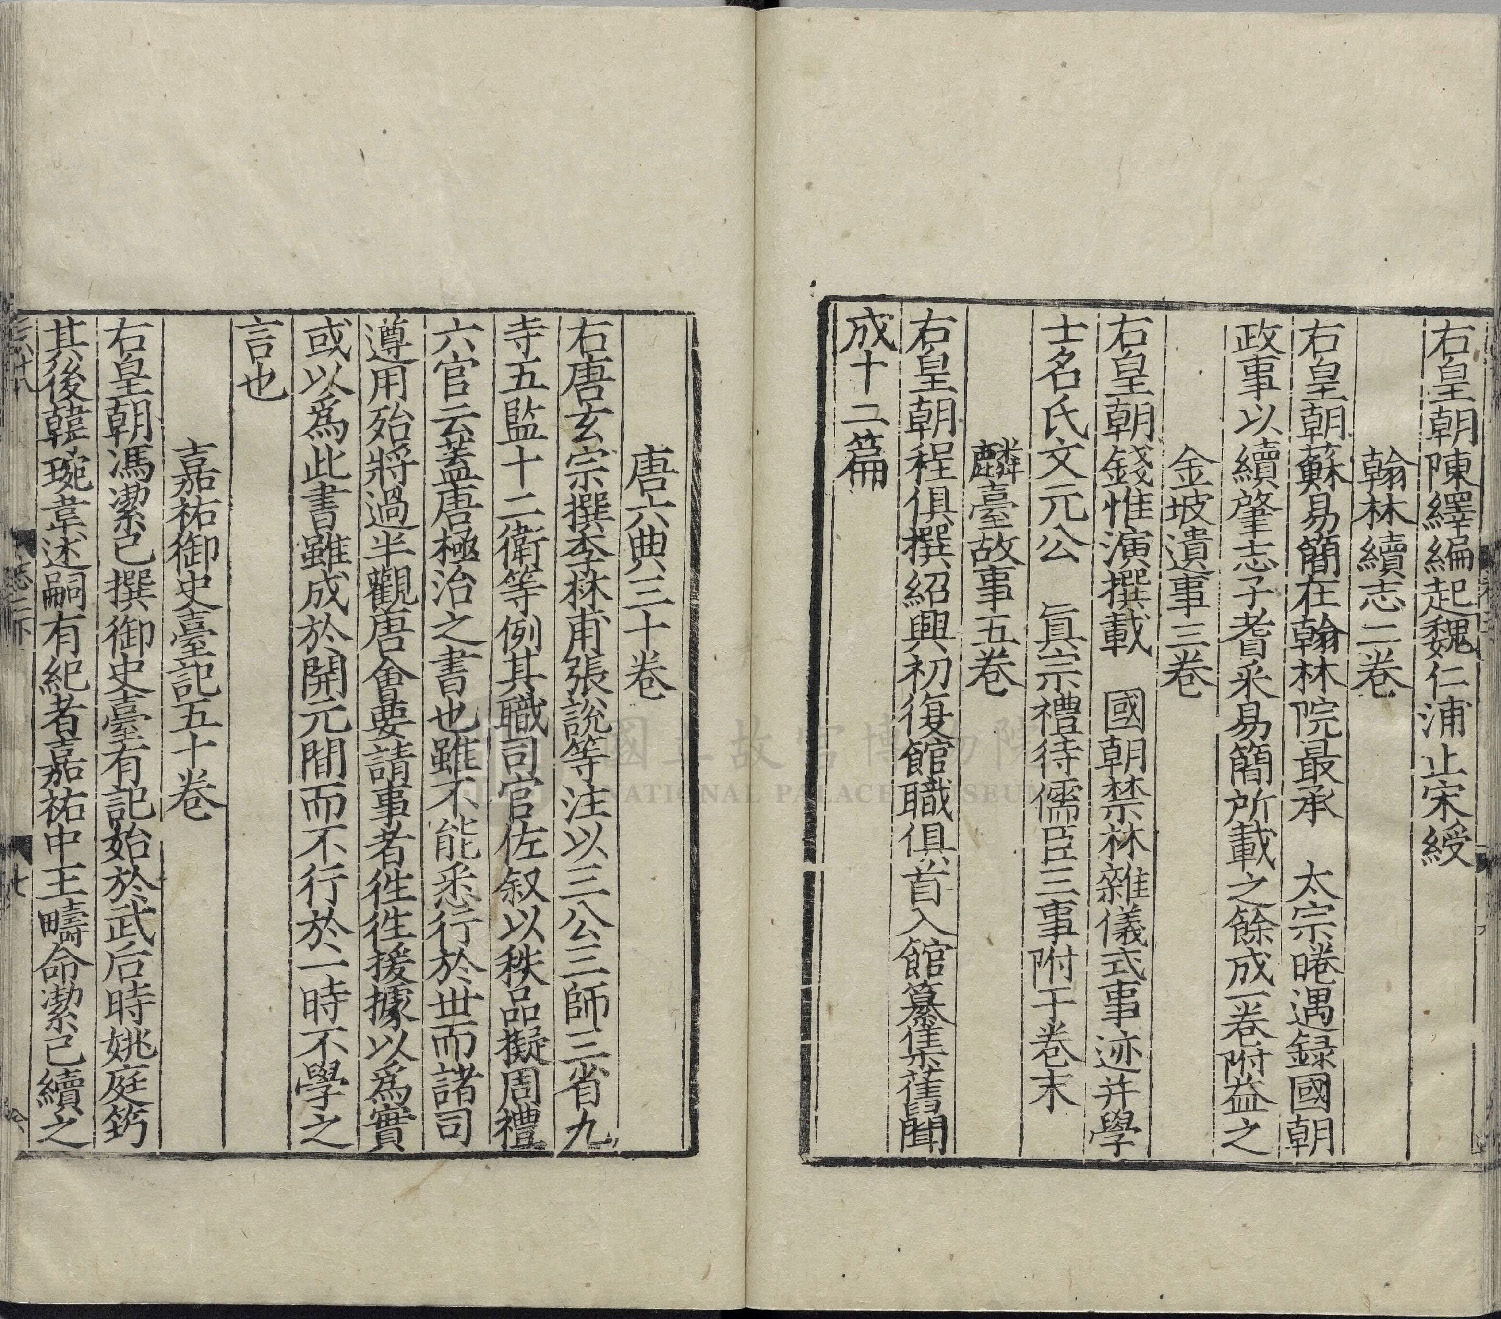 右皇朝陳繹編起魏仁浦止宋綬
翰林續志二卷
右皇朝蘇易簡在翰林院最承　太宗睠遇錄國朝
政事以續肇志子耆采易簡所載之餘成一卷附益之
金坡遺事三卷
右皇朝錢惟演撰載　國朝禁林雜儀式事迹并學
士名氏文元公　眞宗禮待儒臣三事附于卷末
麟臺故事五卷
右皇朝程俱撰紹興初復館職俱首入館纂集舊聞
成十二篇
唐六典三十卷
右唐玄宗撰李林甫張說等注以三公三師三省九
寺五監十二衛等例其職司官佐叙以秩品擬周禮
六官云蓋唐極治之書也雖不能悉行於世而諸司
遵用殆將過半觀唐會要請事者徃徃援據以爲實
或以爲此書雖成於開元間而不行於一時不學之
言也
嘉祐御史臺記五十卷
右皇朝馮潔己撰御史臺有記始於武后時姚庭筠
其後韓琬韋述嗣有紀者嘉祐中王疇命潔己續之
七
國立故宮博物院
NATIONAL PALACE MUSEUM